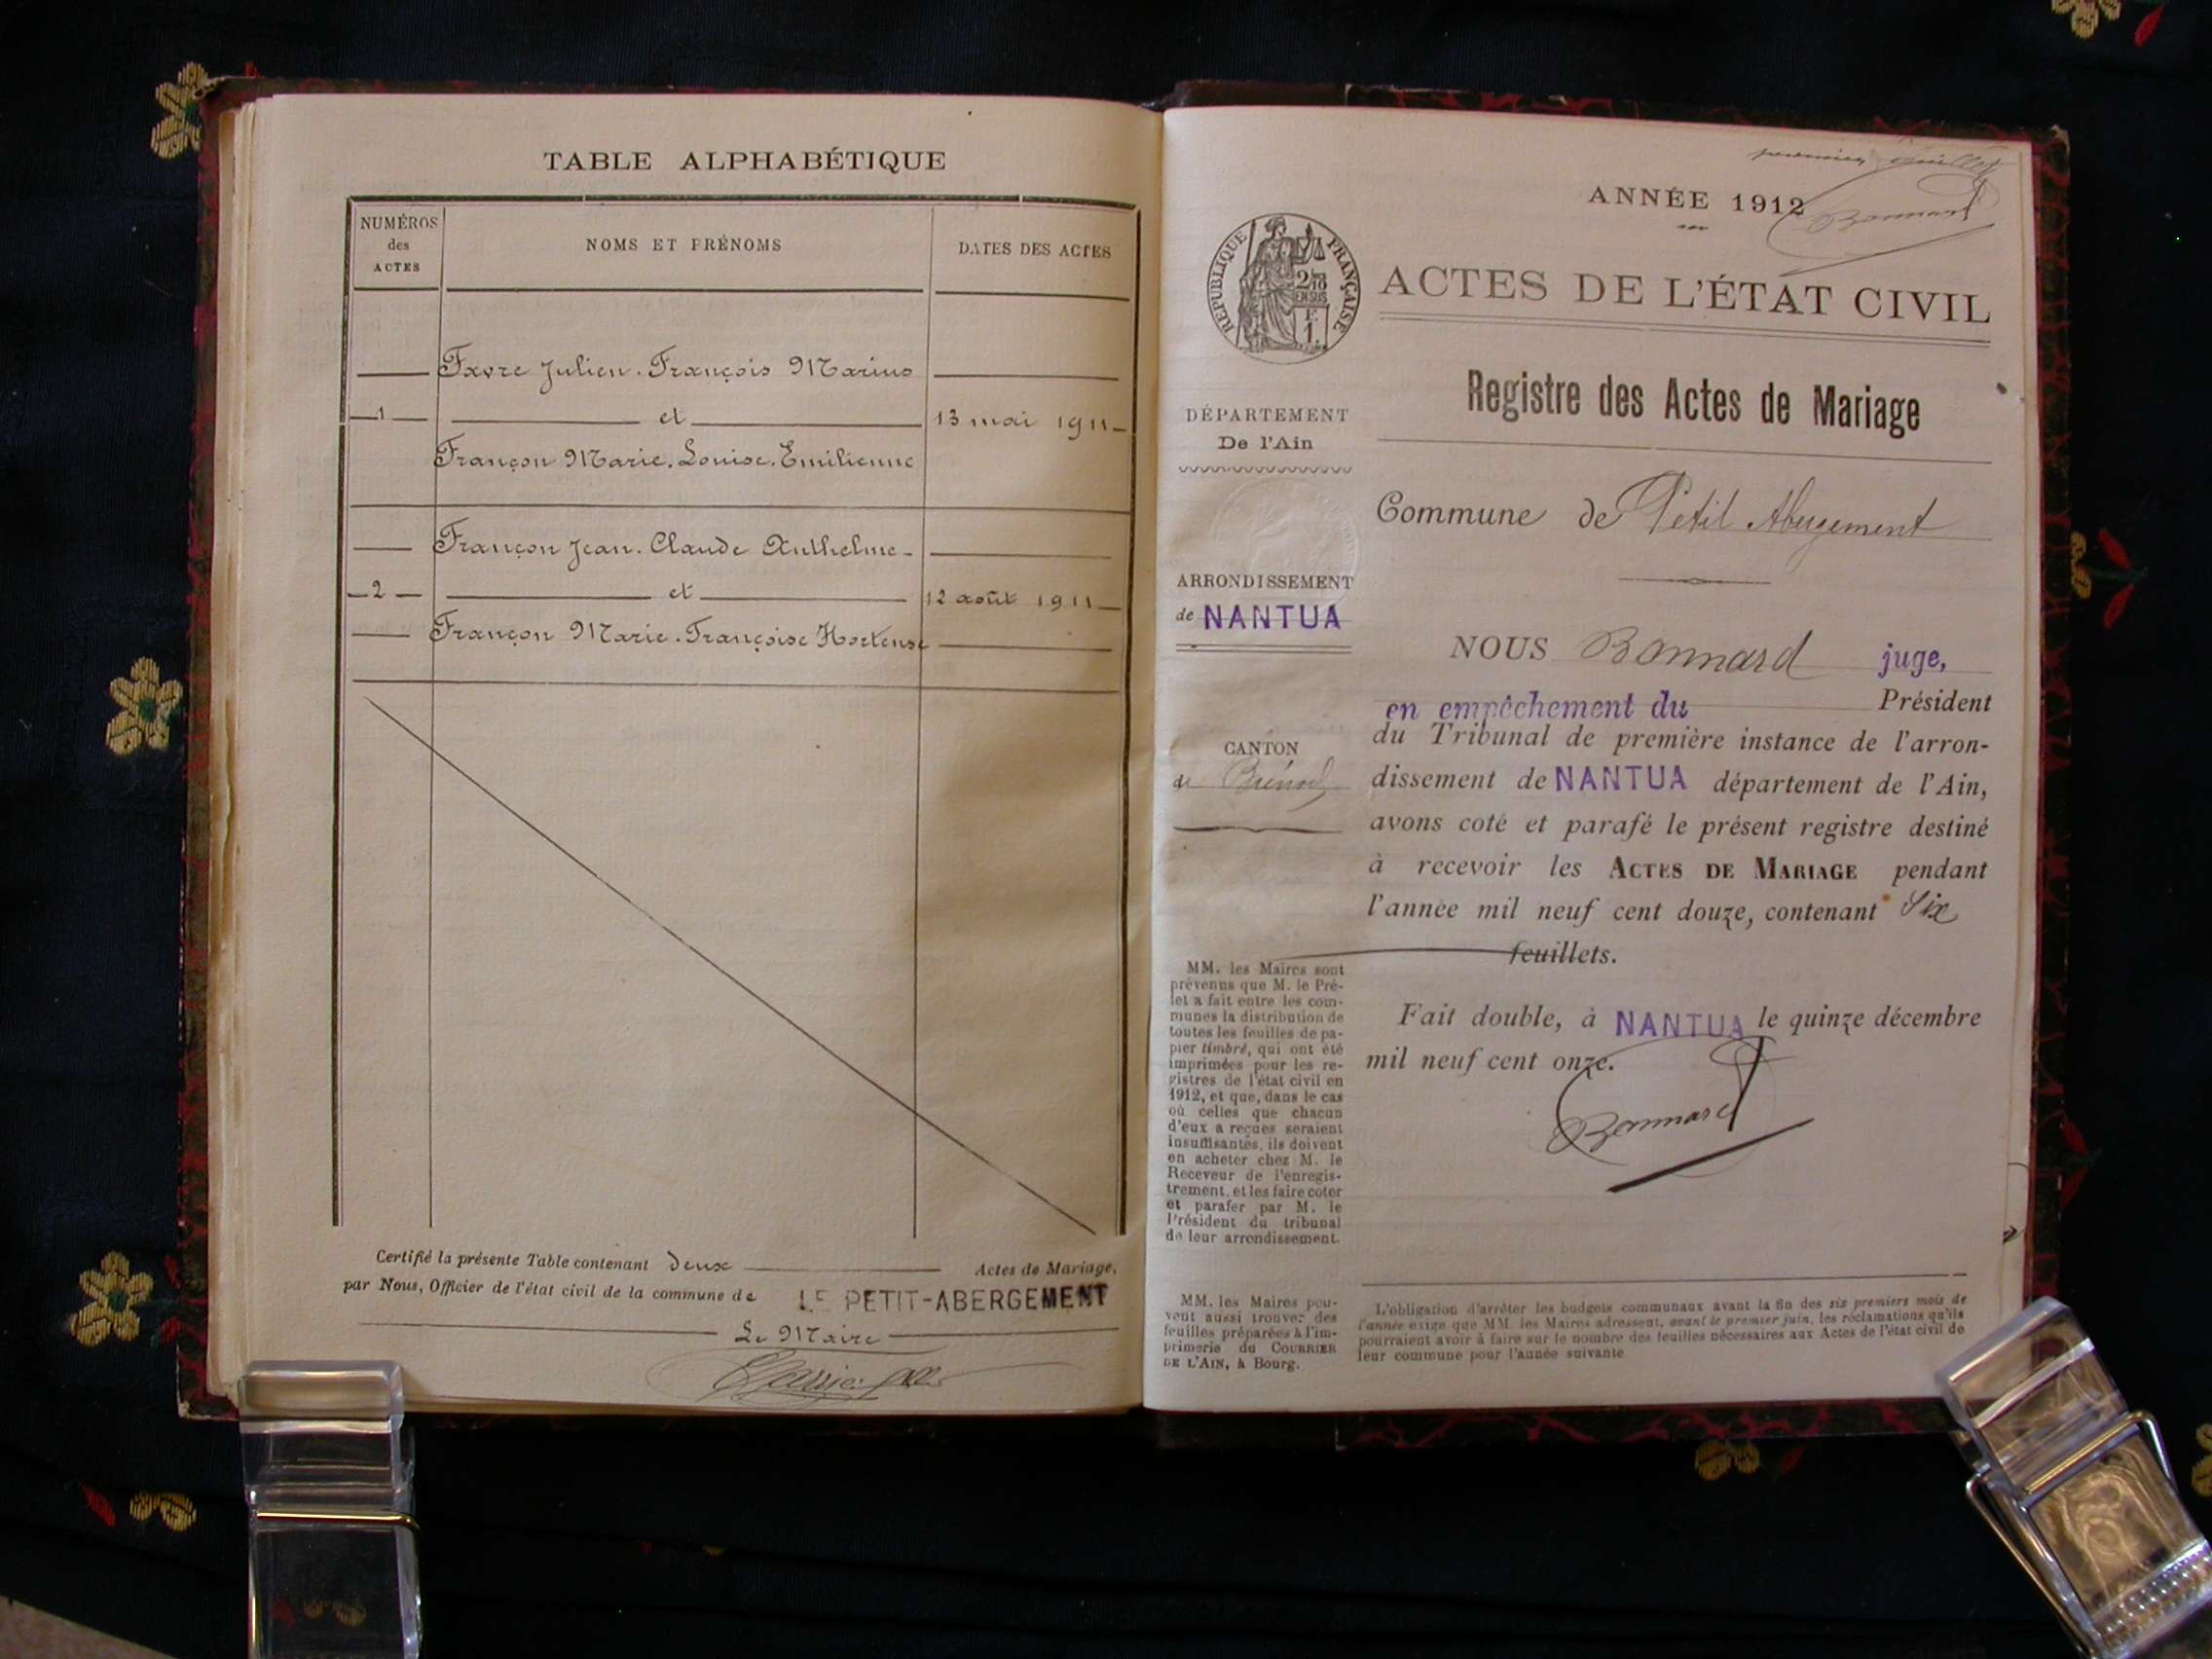 TABLE ALPHABÉTIQUE
NUMÉROS
des
ACTES
NOMS ET PRÉNOMS
DATES DES ACTES
Favre Julien. François Marius
1 et 13 mai 1911
Françon Marie. Louise. Emilienne
Françon Jean. Claude Anthelme
2 et 12 août 1911
Françon Marie. Françoise Hortense
Certifié la présente Table contenant deux Actes de Mariage,
par Nous, Officier de l'état civil de la commune de LE PETIT-ABERGEMENT
Le Maire
premier feuillet
Bonnard
ANNÉE 1912
RÉPUBLIQUE FRANÇAISE
2/10
EN SUS
1.
ACTES DE L'ÉTAT CIVIL
Registre des Actes de Mariage
DÉPARTEMENT
De l'Ain
Commune de Petit Abergement
ARRONDISSEMENT
de NANTUA
CANTON
de Brénod
NOUS Bonnard juge,
en empêchement du Président
du Tribunal de première instance de l'arron-
dissement de NANTUA département de l'Ain,
avons coté et parafé le présent registre destiné
à recevoir les ACTES DE MARIAGE pendant
l'année mil neuf cent douze, contenant Six
feuillets.
Fait double, à NANTUA le quinze décembre
mil neuf cent onze.
Bonnard
MM. les Maires sont
prévenus que M. le Pré-
fet a fait entre les com-
munes la distribution de
toutes les feuilles de pa-
pier timbré, qui ont été
imprimées pour les re-
gistres de l'état civil en
1912, et que, dans le cas
où celles que chacun
d'eux a reçues seraient
insuffisantes, ils doivent
en acheter chez M. le
Receveur de l'enregis-
trement, et les faire coter
et parafer par M. le
Président du tribunal
de leur arrondissement.
MM. les Maires peu-
vent aussi trouver des
feuilles préparées à l'im-
primerie du COURRIER
DE L'AIN, à Bourg.
L'obligation d'arrêter les budgets communaux avant la fin des six premiers mois de
l'année exige que MM. les Maires adressent, avant le premier juin, les réclamations qu'ils
pourraient avoir à faire sur le nombre des feuilles nécessaires aux Actes de l'état civil de
leur commune pour l'année suivante.